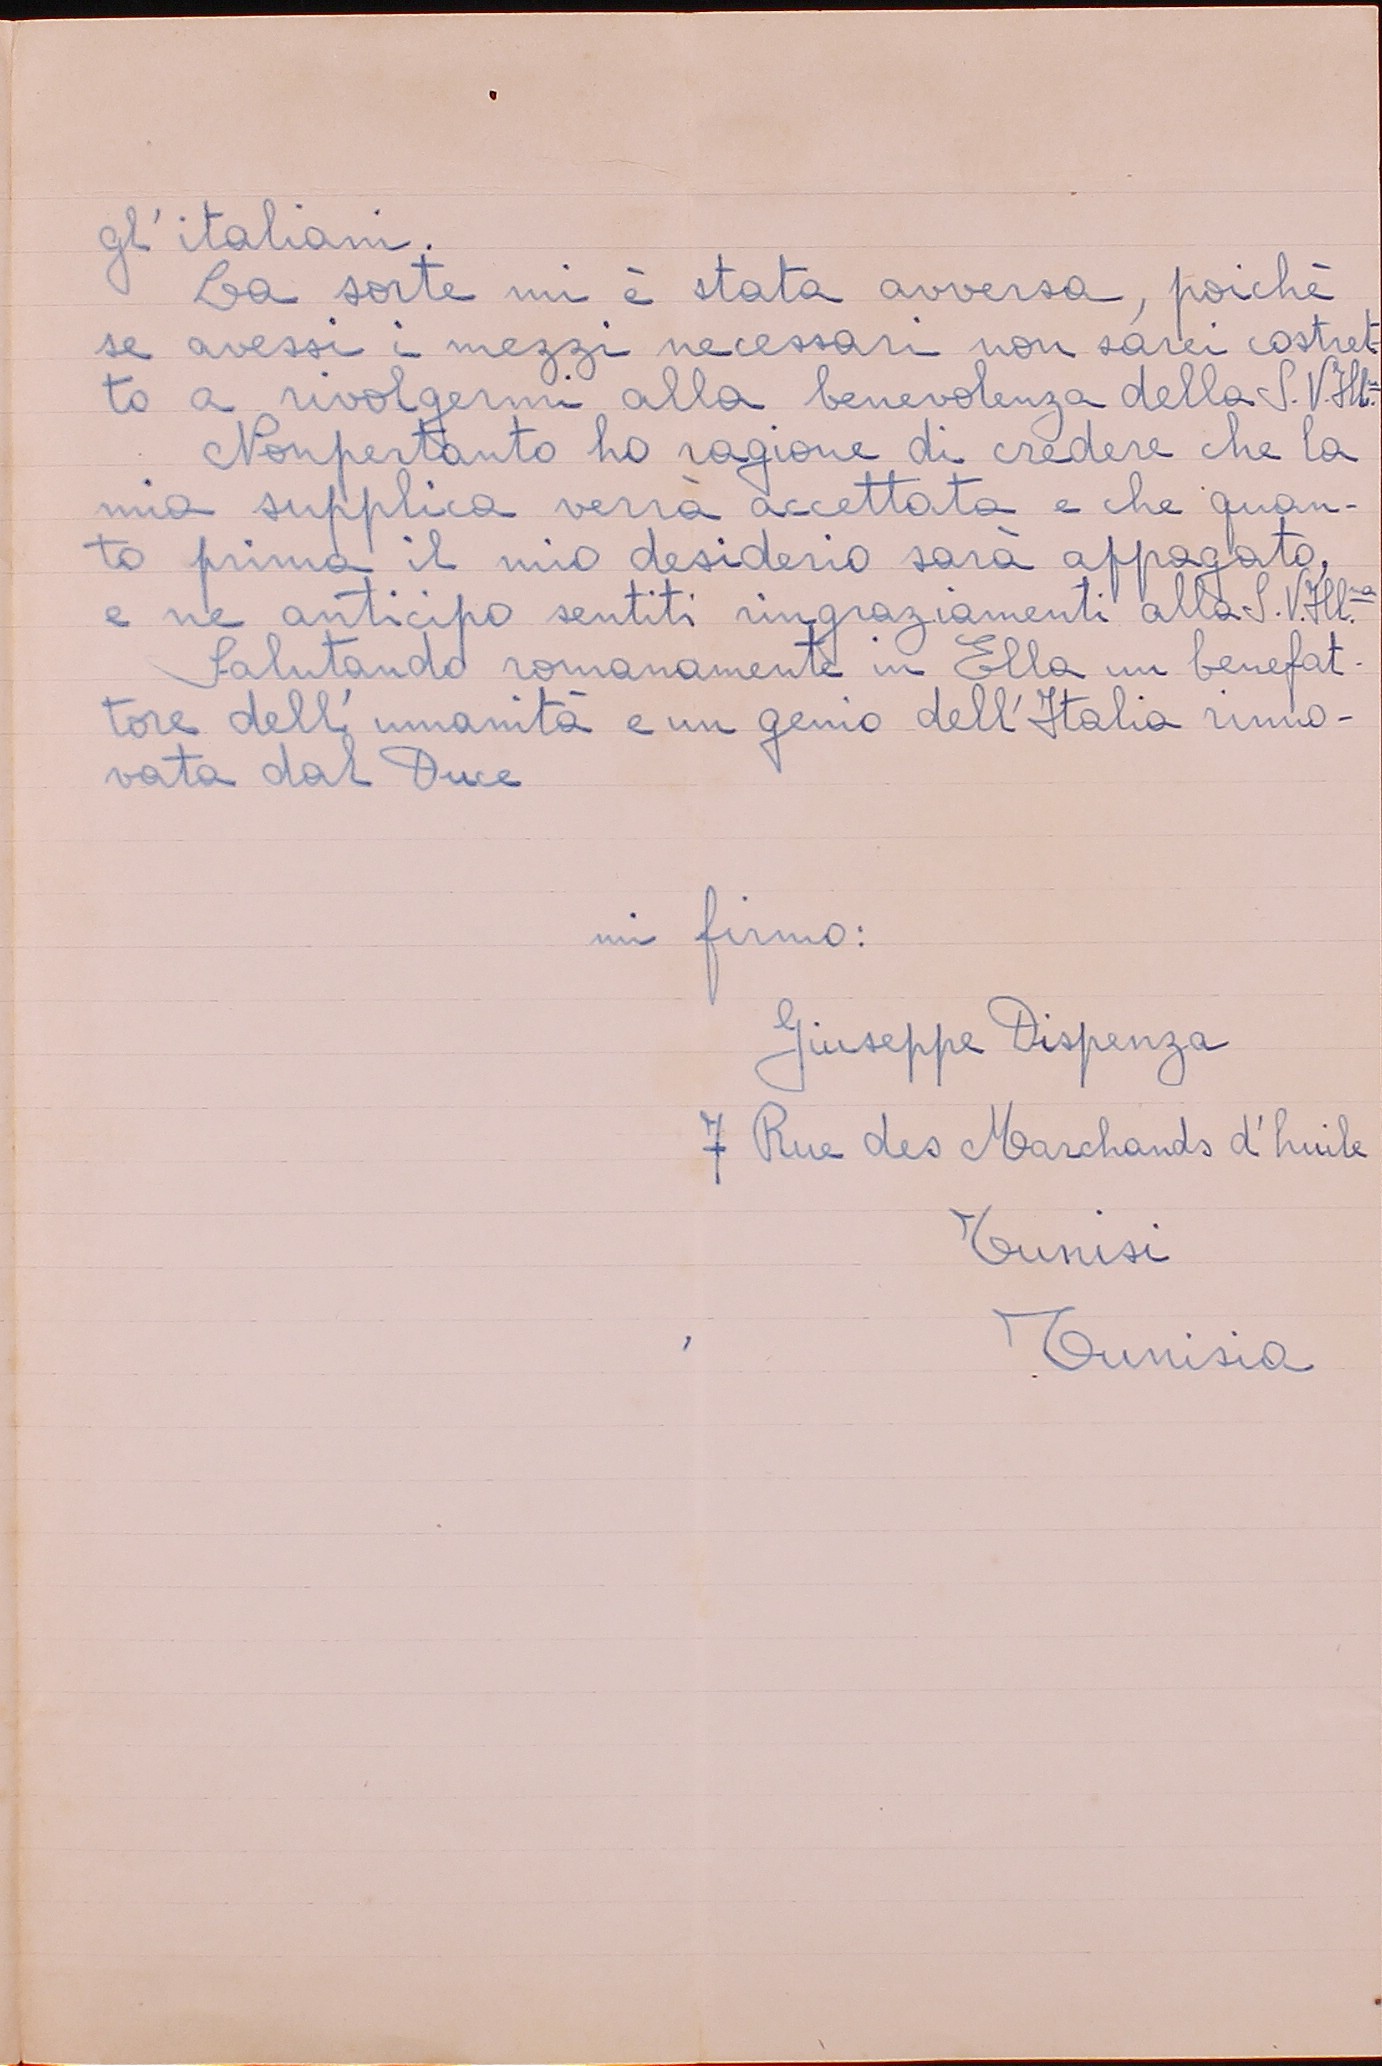 gl' italiani.
La sorte mi è stata avversa, poichè
se avessi i mezzi necessari non sarei costret-
to a rivolgermi alla benevolenza della S. V. Ill.ma
Nonpertanto ho ragione di credere che la
mia supplica verrà accettata e che quan-
to prima il mio desiderio sarà appagato,
e ne anticipo sentiti ringraziamenti alla S. V. Ill.ma
Salutando romanamente in Ella un benefat-
tore dell' umanità e un genio dell' Italia rinno-
vata dal Duce
mi firmo:
Giuseppe Dispenza
7 Rue des Marchands d'huile
Tunisi
Tunisia